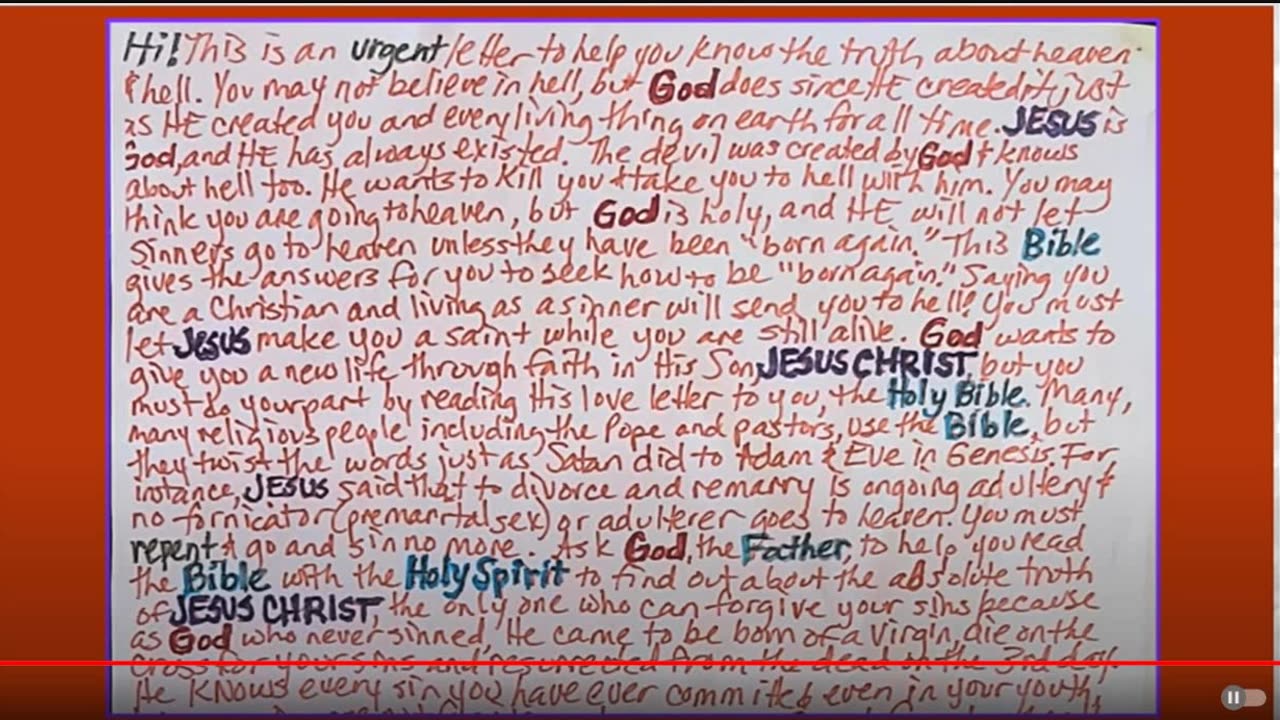 Hi! This is an urgent letter to help you know the truth about heaven
& hell. You may not believe in hell, but God does since HE created it just
as HE created you and every living thing on earth for all time. JESUS is
God, and HE has always existed. The devil was created by God & knows
about hell too. He wants to kill you & take you to hell with him. You may
think you are going to heaven, but God is holy, and HE will not let
sinners go to heaven unless they have been "born again." This Bible
gives the answers for you to seek how to be "born again." Saying you
are a Christian and living as a sinner will send you to hell! You must
let JESUS make you a saint while you are still alive. God wants to
give you a new life through faith in His Son, JESUS CHRIST, but you
must do your part by reading His love letter to you, the Holy Bible. Many,
many religious people including the Pope and pastors, use the Bible, but
they twist the words just as Satan did to Adam & Eve in Genesis. For
instance, JESUS said that to divorce and remarry is ongoing adultery &
no fornicator (premarital sex) or adulterer goes to heaven. You must
repent & go and sin no more. Ask God, the Father, to help you read
the Bible with the Holy Spirit to find out about the absolute truth
of JESUS CHRIST, the only one who can forgive your sins because
as God who never sinned, He came to be born of a virgin, die on the
cross for your sins and resurrected from the dead on the 3rd day.
He KNOWS every sin you have ever committed even in your youth,